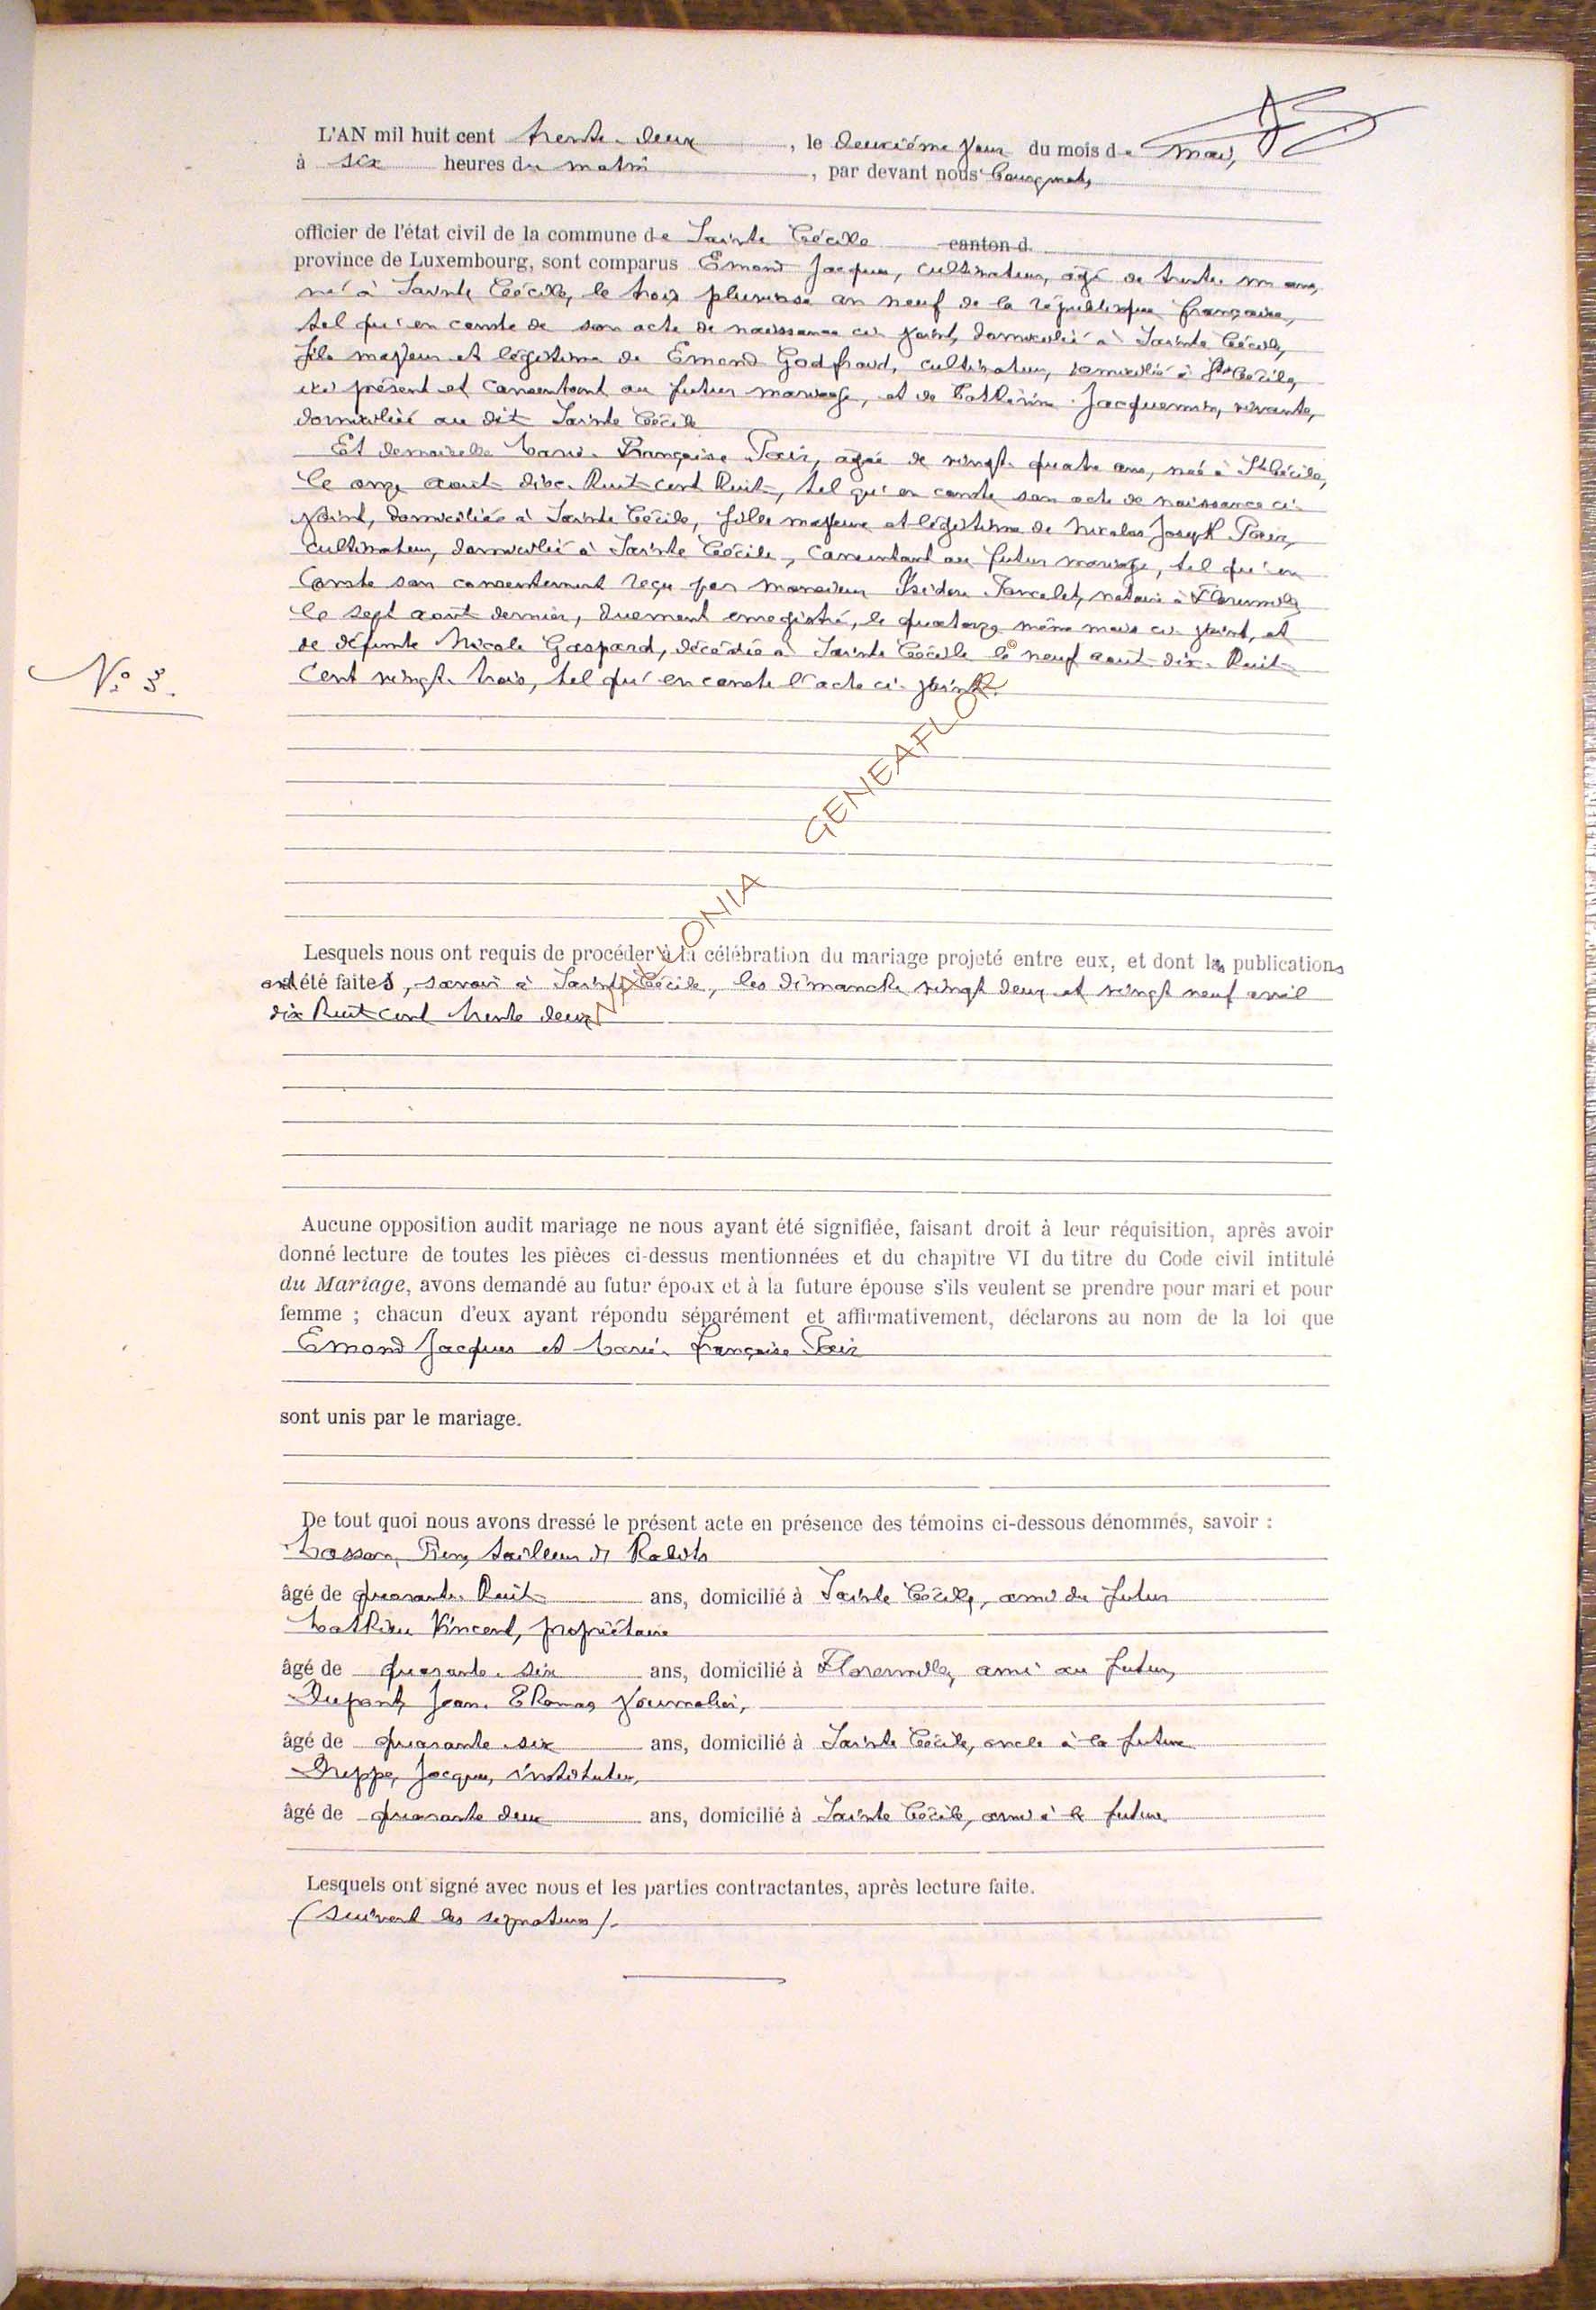 L'AN mil huit cent trente-deux, le deuxième jour du mois de mai,
à six heures du matin, par devant nous
officier de l'état civil de la commune de Sainte Cécile canton d
province de Luxembourg, sont comparus Emond Jacques, cultivateur, âgé de trente un ans,
né à Sainte Cécile, le trois pluviose an neuf de la république française,
tel qu'en conste de son acte de naissance ci-joint, domicilié à Sainte Cécile,
fils majeur et légitime de Emond Godfroid, cultivateur, domicilié à Ste Cécile,
ici présent et consentant au futur mariage, et de Catherine Jacquemin, vivante,
domicilié au dit Sainte Cécile
Et demoiselle Marie-Françoise Poir, âgée de vingt-quatre ans, née à Ste Cécile,
le onze août dix-huit cent huit, tel qu'en conste son acte de naissance ci-
joint, domiciliée à Sainte Cécile, fille majeure et légitime de Nicolas Joseph Poir,
cultivateur, domicilié à Sainte Cécile, consentant au futur mariage, tel qu'en
Conste son consentement reçu par monsieur Isidore notaire à Florenville
le sept août dernier, duement enregistré, le quatorze même mois ci-joint, et
N° 3.
de défunte Nicole Gaspard, décédée à Sainte Cécile le neuf août dix-huit
Cent vingt-trois, tel qu'en conste l'acte ci-joint.
© WALLONIA GENEAFLOR
Lesquels nous ont requis de procéder à la célébration du mariage projeté entre eux, et dont les publications
ont été faites, savoir à Sainte Cécile, les dimanche vingt deux et vingt neuf avril
dix huit cent trente deux
Aucune opposition audit mariage ne nous ayant été signifiée, faisant droit à leur réquisition, après avoir
donné lecture de toutes les pièces ci-dessus mentionnées et du chapitre VI du titre du Code civil intitulé
du Mariage, avons demandé au futur époux et à la future épouse s'ils veulent se prendre pour mari et pour
femme ; chacun d'eux ayant répondu séparément et affirmativement, déclarons au nom de la loi que
Emond Jacques et Marie-Françoise Poir
sont unis par le mariage.
De tout quoi nous avons dressé le présent acte en présence des témoins ci-dessous dénommés, savoir :
Masson, Pierre, tailleur d'habits
âgé de quarante-huit ans, domicilié à Sainte Cécile, ami du futur
Mathieu Vincent, propriétaire
âgé de quarante-six ans, domicilié à Florenville, ami au futur,
Dupont, Jean-Thomas, journalier,
âgé de quarante-six ans, domicilié à Sainte Cécile, oncle à la future
Dreppe, Jacques, instituteur,
âgé de quarante deux ans, domicilié à Sainte Cécile, ami à la future
Lesquels ont signé avec nous et les parties contractantes, après lecture faite.
(Suivent les signatures).